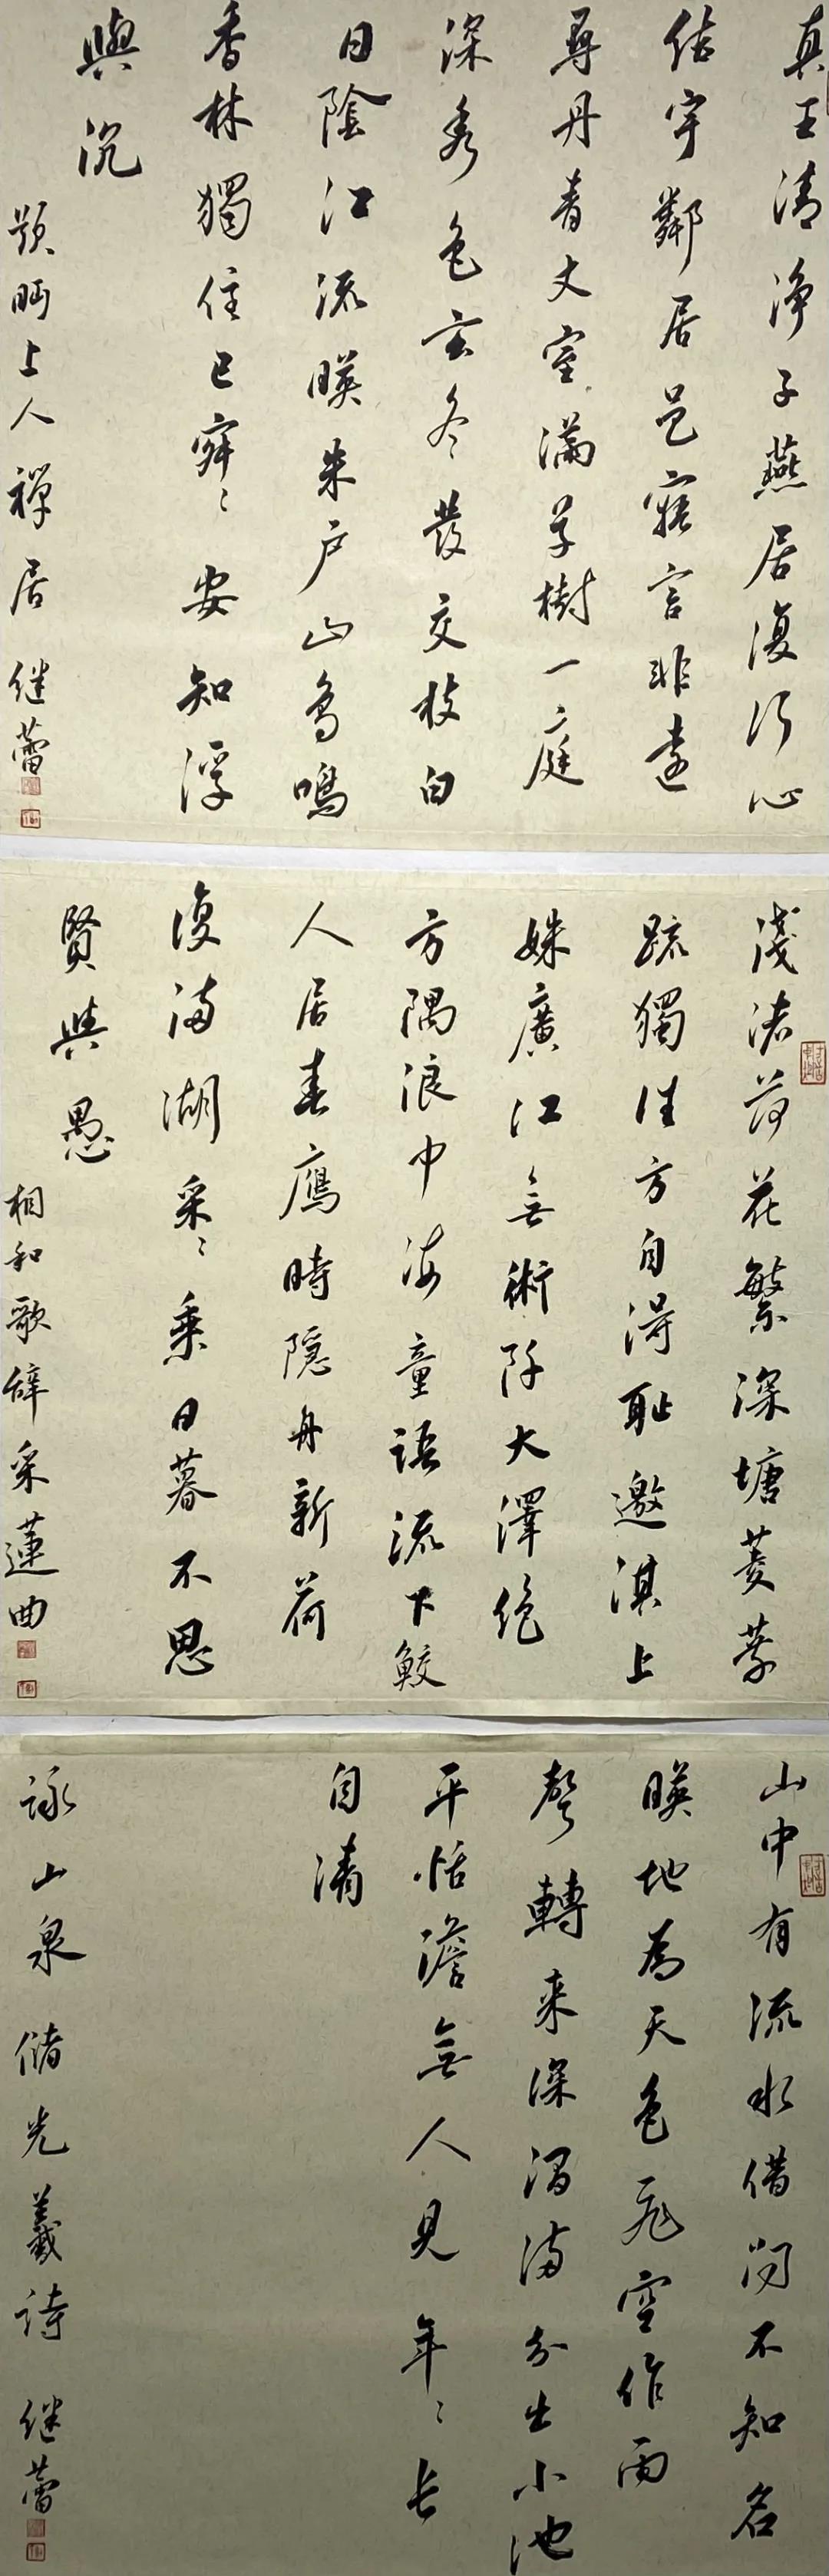 真王清淨子燕居復行心
結宇鄰居邑寤言非遠
尋丹青丈室滿草樹一庭
深秀色玄冬發交枝白
日陰江流暎朱戶山鳥鳴
香林獨住已寂〻安知浮
與沉
題眄上人禪居 继蕾
淺渚荷花繁深塘菱葉
疏獨往方自得耻邀淇上
姝廣江無術阡大澤绝
方隅浪中海童語流下鮫
人居春鴈時隱舟新荷
復滿湖采〻乘日暮不思
賢與愚
相和歌辞采蓮曲
山中有流水借问不知名
暎地為天色飛空作雨
聲轉来深澗满分出小池
平恬澹無人見年〻长
自清
詠山泉 儲光羲诗 继蕾